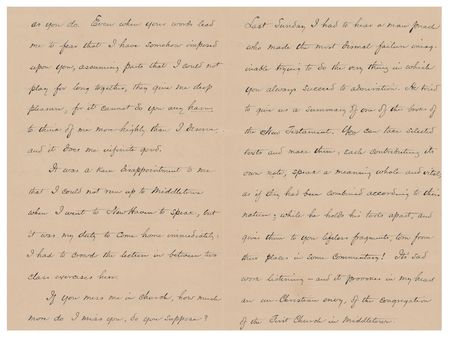 as you do. Even when your words lead
me to fear that I have somehow imposed
upon you, assuming parts that I could not
play for long together, they give me deep
pleasure, for it cannot do you any harm
to think of me more highly than I deserve
and it does me infinite good.
It was a keen disappointment to me
that I could not run up to Middletown
when I went to New Haven to speak, but
it was my duty to come home immediately.
I had to crowd the lecture in between two
class exercises here.
If you miss me in church, how much
more do I miss you, do you suppose?
Last Sunday I had to hear a man preach
who made the most dismal failure imag-
inable trying to do the very thing in which
you always succeed to admiration. He tried
to give us a summary of one of the books of
the New Testament. You can take selected
texts and make them, each contributing its
own note, speak a meaning whole and vital,
as if they had been combined according to their
nature; while he holds his texts apart, and
gives them to you lifeless fragments, torn from
their places in some commentary! It's sad
work listening—and it provokes in my heart
an un-Christian envy, of the congregation
of the First Church in Middletown.